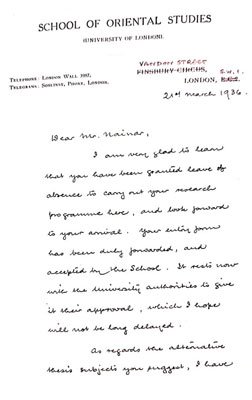 SCHOOL OF ORIENTAL STUDIES
(UNIVERSITY OF LONDON).
VANDON STREET
FINSBURY CIRCUS, S.W.1.
TELEPHONE: LONDON WALL
LONDON, E.C.2.
TELEGRAMS: SOSLINST, PHONE, LONDON.
21st March 1936.
Dear Mr. Nainar,
I am very glad to learn
that you have been granted leave of
absence to carry out your research
programme here, and look forward
to your arrival. Your entry form
has been duly forwarded, and
accepted by the School. It rests now
with the University authorities to give
it their approval, which I hope
will not be long delayed.
As regards the alternative
thesis subjects you suggest, I have